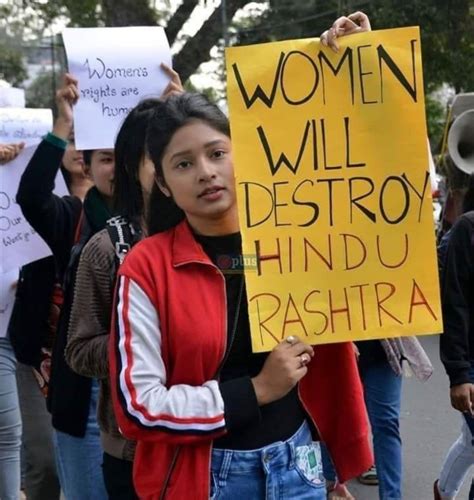 Women's
rights are
human
WOMEN
WILL
DESTROY
HINDU
RASHTRA
plus